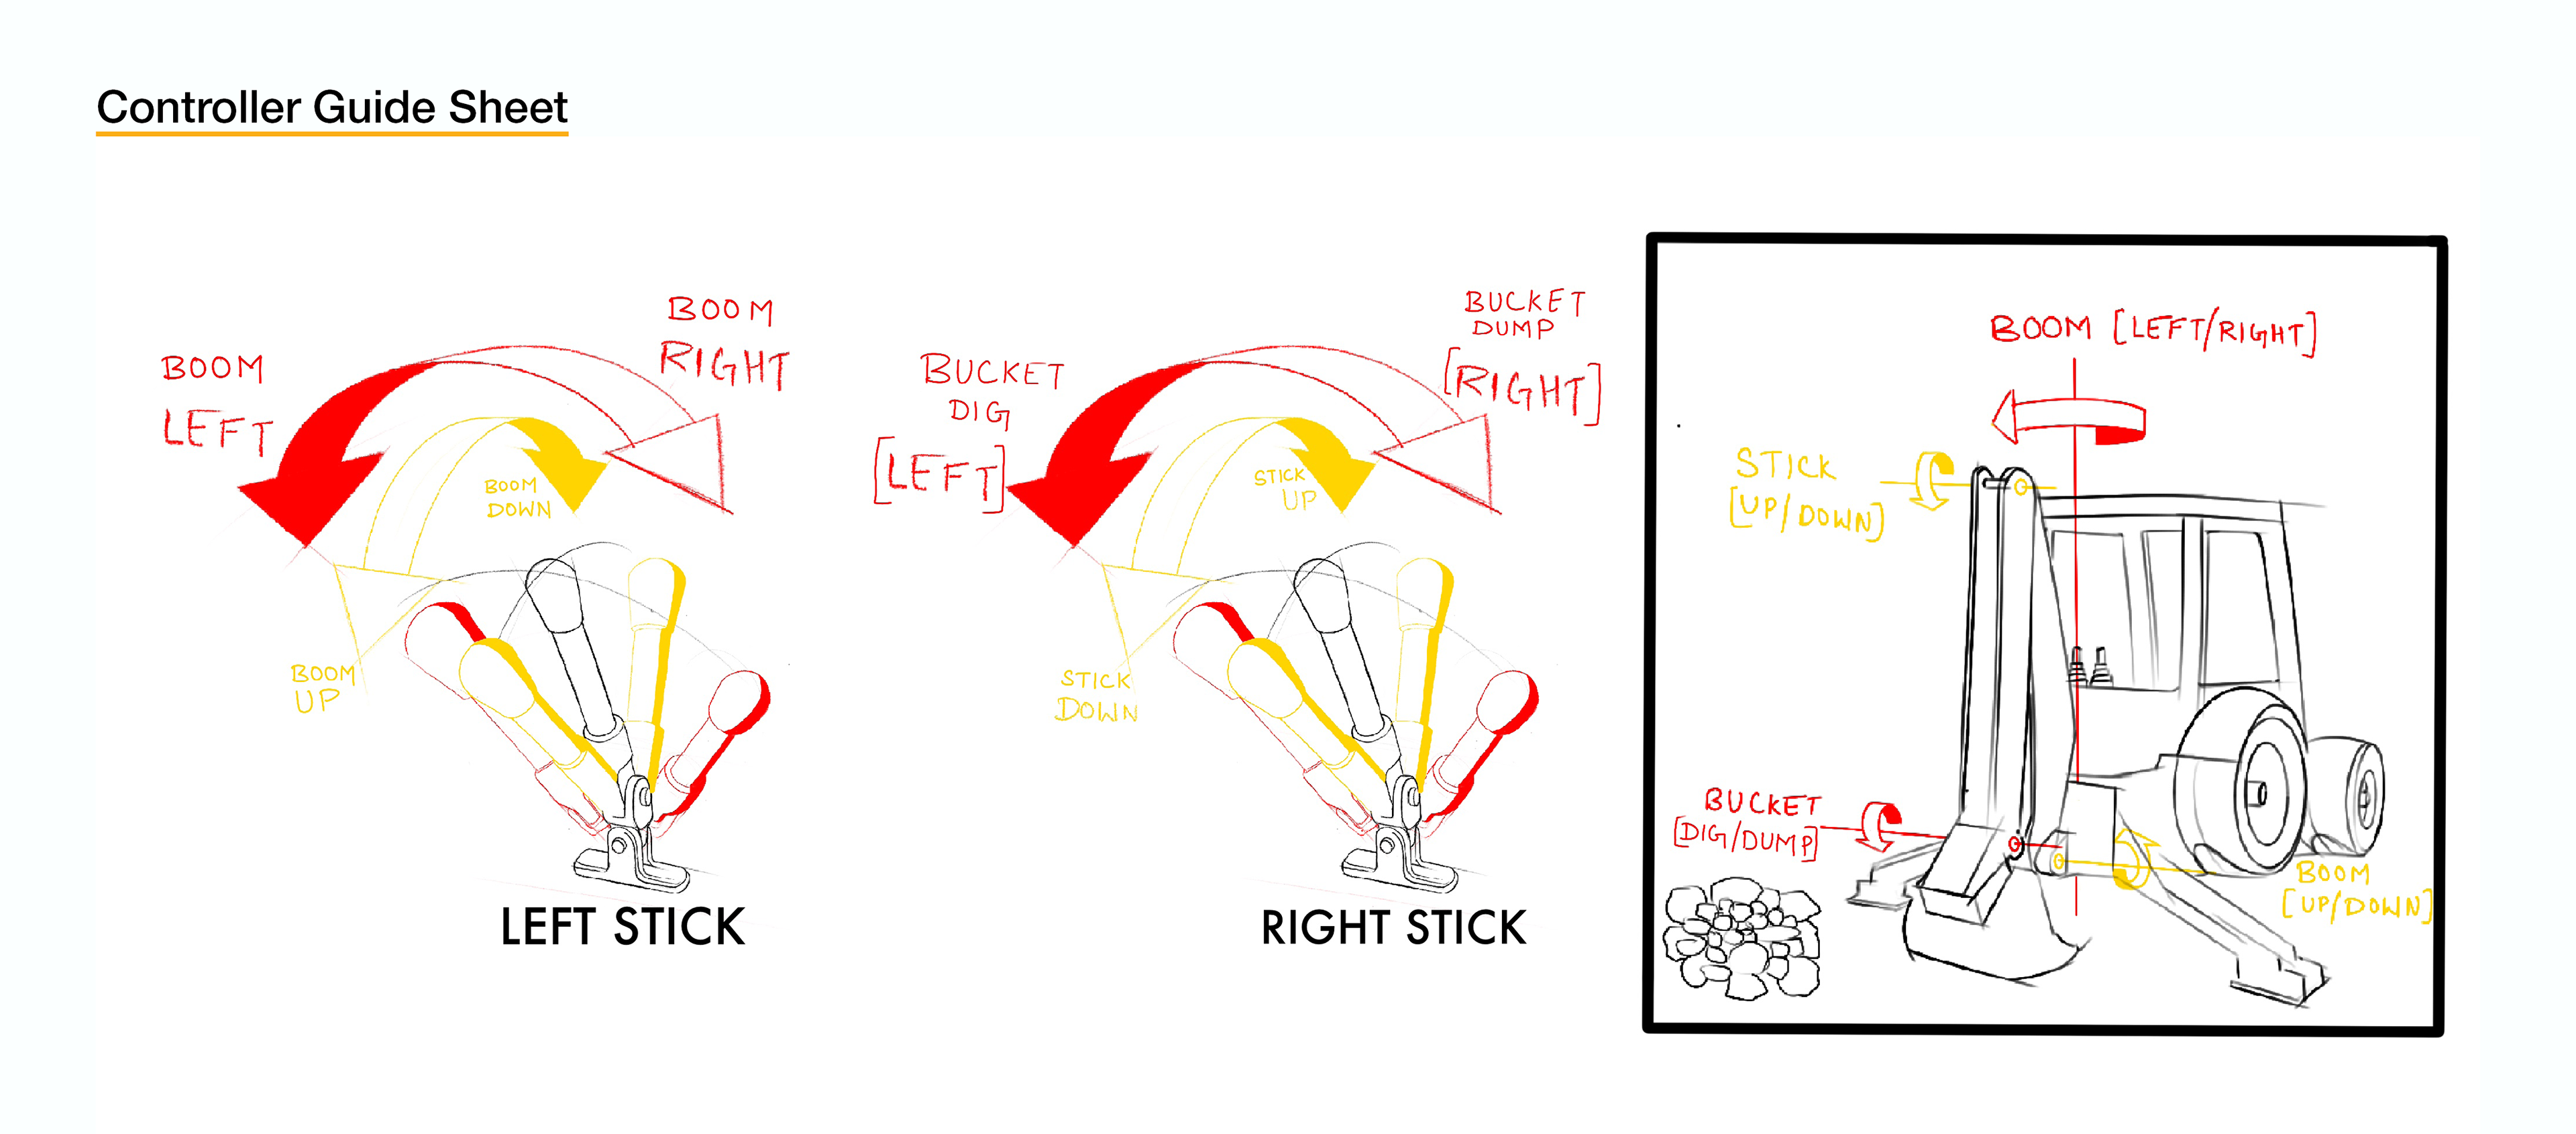 Controller Guide Sheet
BOOM
LEFT
BOOM
RIGHT
BOOM
DOWN
BOOM
UP
LEFT STICK
BUCKET
DIG
[LEFT]
BUCKET
DUMP
[RIGHT]
STICK
UP
STICK
DOWN
RIGHT STICK
BOOM [LEFT/RIGHT]
STICK
[UP/DOWN]
BUCKET
[DIG/DUMP]
BOOM
[UP/DOWN]